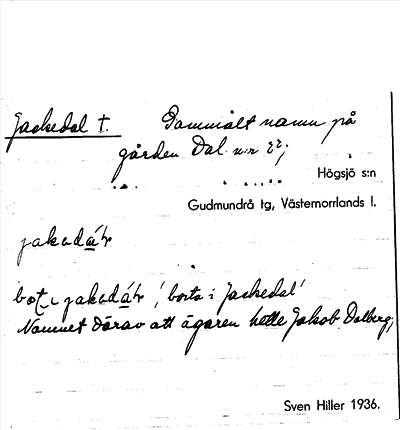 Jackedal t. Gammalt namn på
gården Dal n:r 22;
Högsjö s:n
Gudmundrå tg, Västernorrlands l.
jakadáḷ
bot i jakadáḷ 'borta i Jackedal'
Namnet därav att ägaren hette Jakob Dalberg;
Sven Hiller 1936.